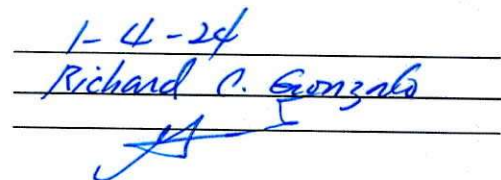 1-4-24
Richard C. Gonzalo